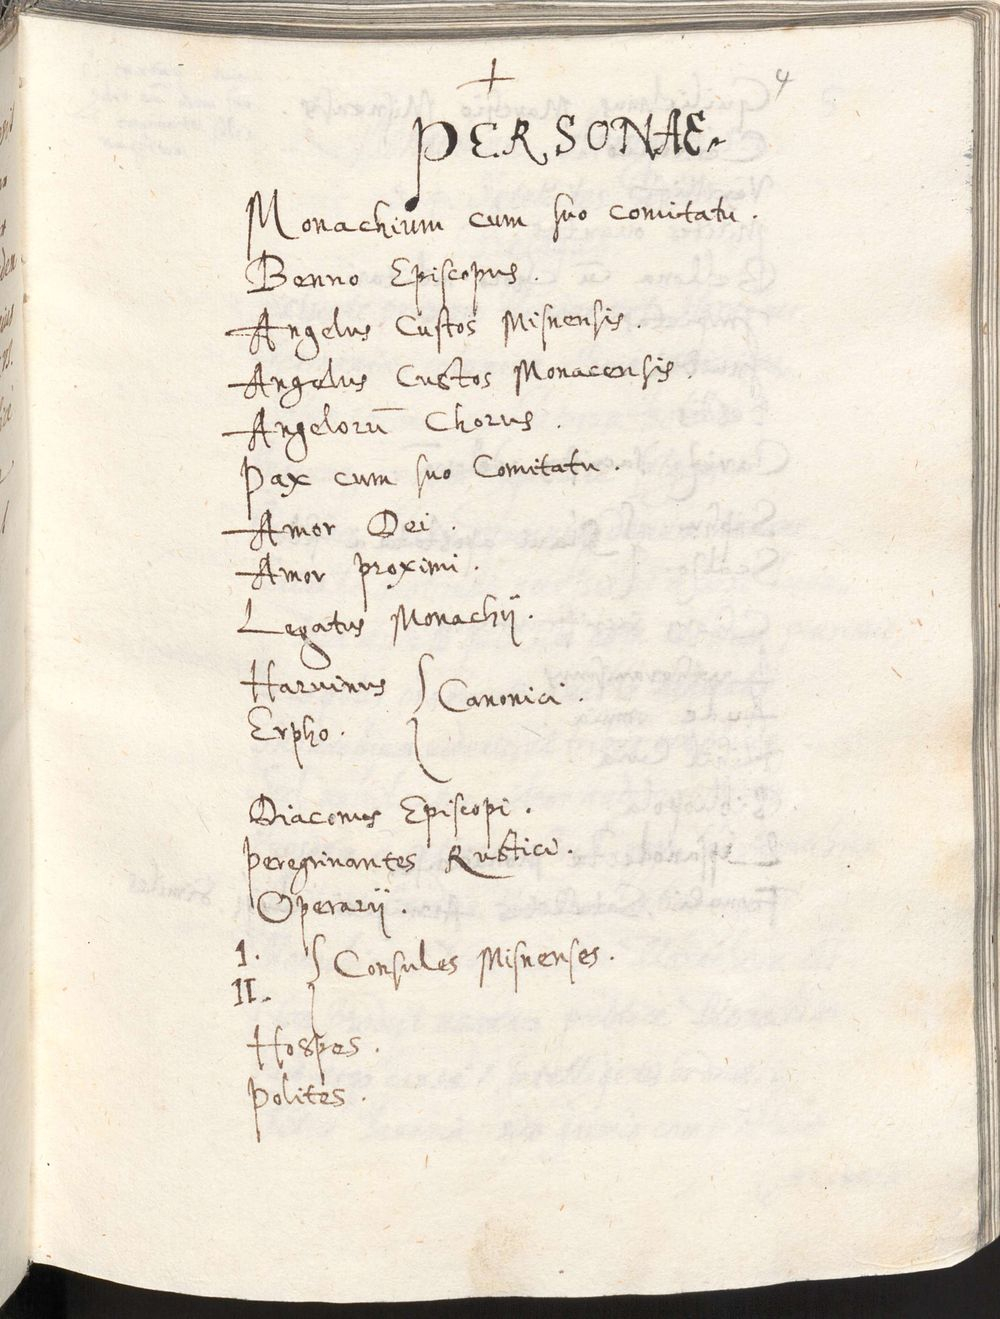 + 4
PERSONAE.
Monachium cum suo comitatu.
Benno Episcopus.
Angelus Custos Misnensis.
Angelus Custos Monacensis.
Angelorū Chorus.
Pax cum suo Comitatu.
Amor Dei.
Amor proximi.
Legatus Monachij.
Haruinus
Canonici.
Erpho.
Diaconus Episcopi.
Peregrinantes Rustici.
Operarij.
I.
Consules Misnenses.
II.
Hospes.
Polites.